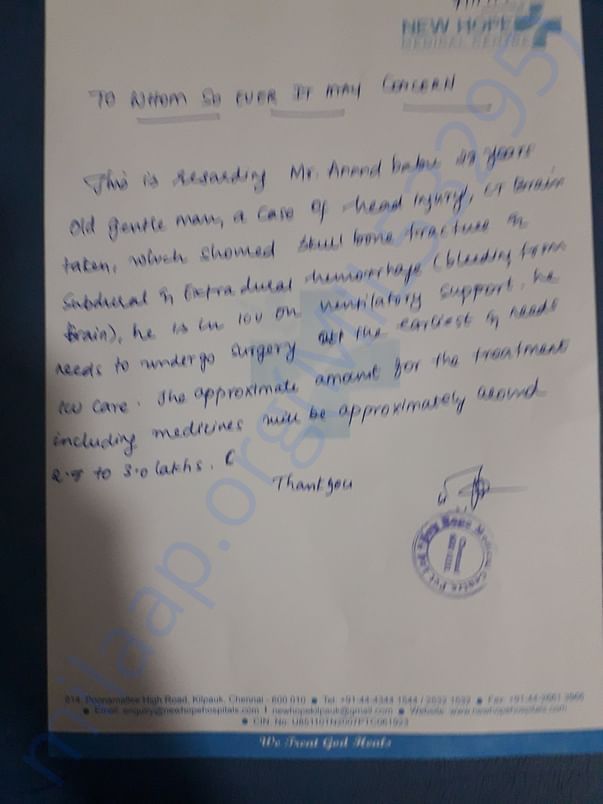 NEW HOPE
MEDICAL CENTRE
TO WHOM SO EVER IT MAY CONCERN
This is regarding Mr. Anand babu years
old gentle man, a case of head injury, CT Brain
taken, which showed skull bone fracture &
subdural & Extradural hemorrhage (bleeding form
brain), he is in ICU on ventilatory support. he
needs to undergo surgery at the earliest & needs
ICU care. The approximate amount for the treatment
including medicines will be approximately around
2.5 to 3.0 lakhs.
Thankyou
New Hope Medical Centre Pvt Ltd
814, Poonamallee High Road, Kilpauk, Chennai - 600 010 Tel: +91-44-4344 1544 / 2032 1032 Fax: +91-44-2661 3966
Email: enquiry@newhopehospitals.com I newhopekilpauk@gmail.com Website: www.newhopehospitals.com
CIN. No.
We Treat God Heals
milaap.org(MIL532295)